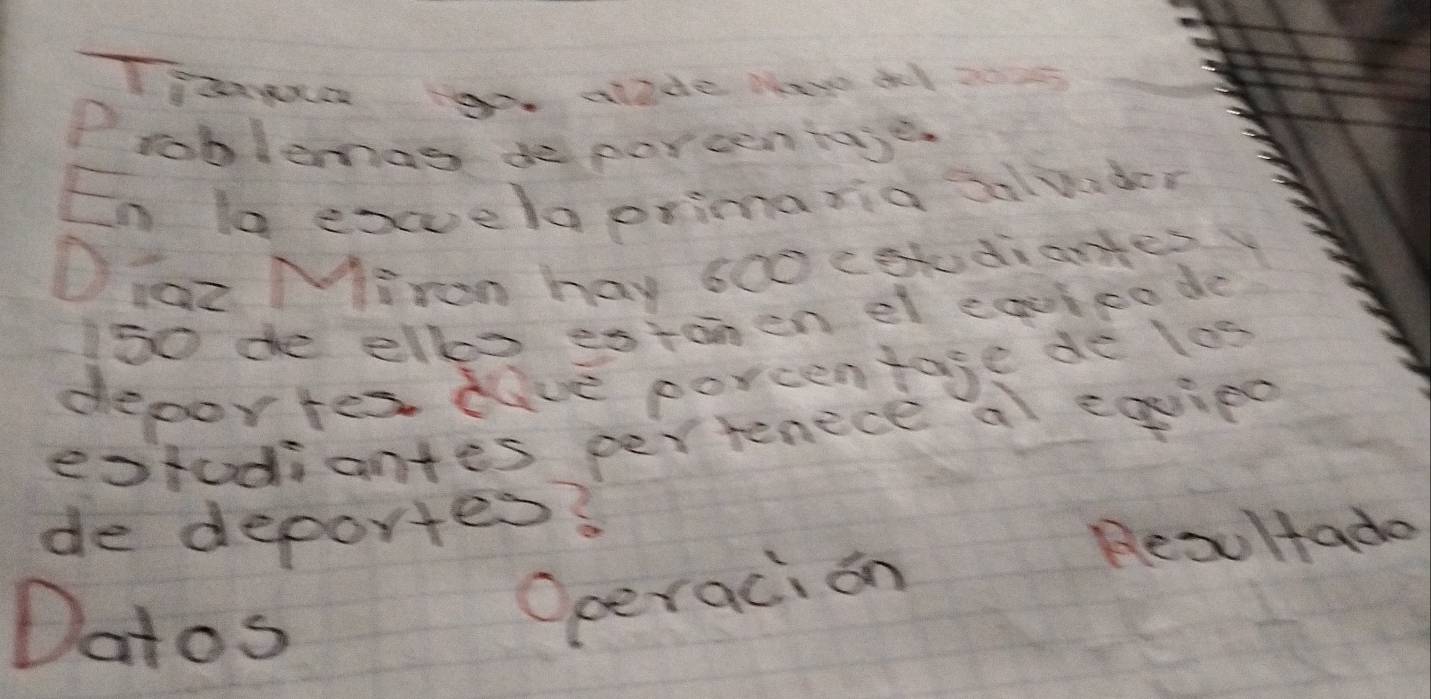 Hgo. a 12 de Mayo del 2025
Problemas de porcentaje.
En la escuela primaria Salvador
Díaz Miron hay 600 estudiantes y
150 de ellos están en el equipo de
deportes. ¿Qué porcentaje de los
estudiantes pertenece al equipo
de deportes?
Datos Operación Resultado